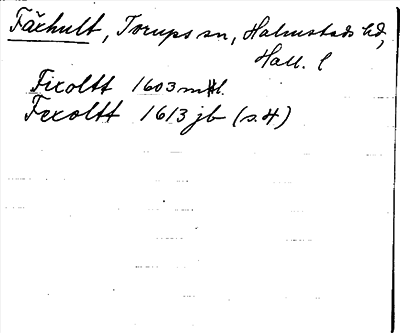 Fäxhult, Torups sn, Halmstads hd,
Hall. l
Fixoltt 1603 mtl.
Fexoltt 1613 jb (s. 4)